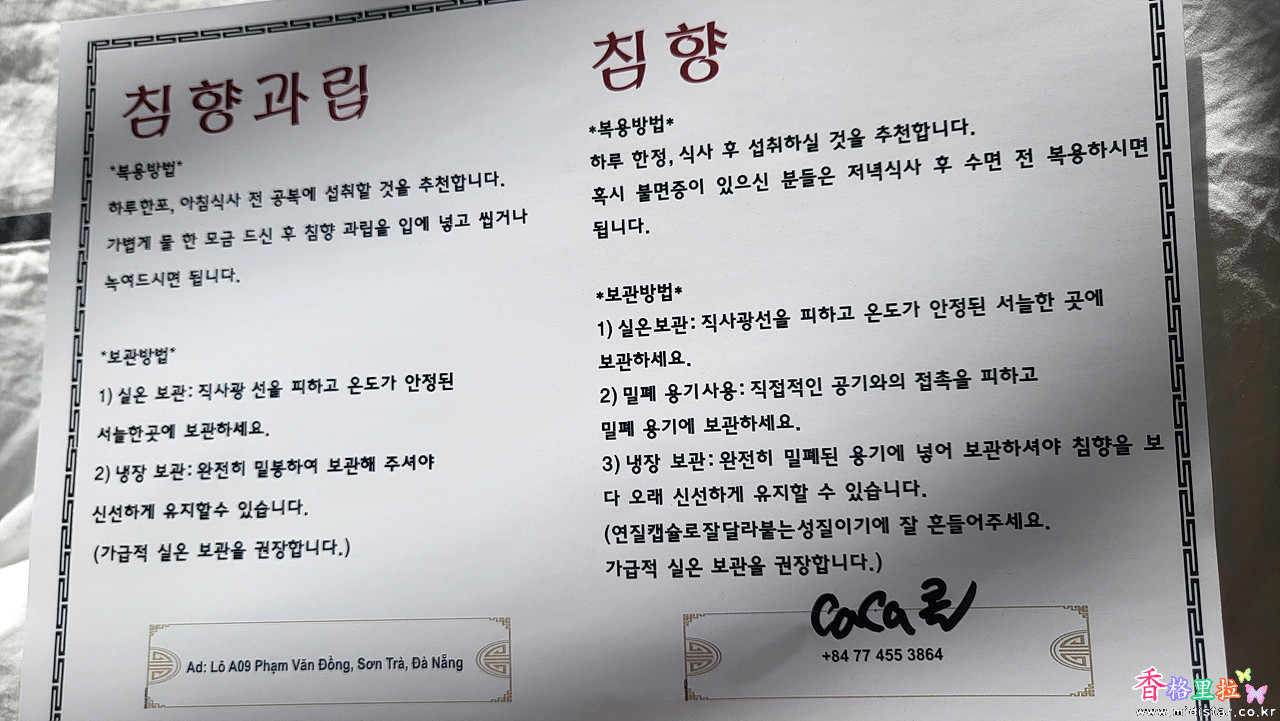 침향과립
*복용방법*
하루한포, 아침식사 전 공복에 섭취할 것을 추천합니다.
가볍게 물 한 모금 드신 후 침향 과립을 입에 넣고 씹거나
녹여드시면 됩니다.
*보관방법*
1) 실온 보관: 직사광 선을 피하고 온도가 안정된
서늘한곳에 보관하세요.
2) 냉장 보관: 완전히 밀봉하여 보관해 주셔야
신선하게 유지할수 있습니다.
(가급적 실온 보관을 권장합니다.)
Ad: Lô A09 Phạm Văn Đồng, Sơn Trà, Đà Nẵng
침향
*복용방법*
하루 한정, 식사 후 섭취하실 것을 추천합니다.
혹시 불면증이 있으신 분들은 저녁식사 후 수면 전 복용하시면
됩니다.
*보관방법*
1) 실온보관: 직사광선을 피하고 온도가 안정된 서늘한 곳에
보관하세요.
2) 밀폐 용기사용: 직접적인 공기와의 접촉을 피하고
밀폐 용기에 보관하세요.
3) 냉장 보관: 완전히 밀폐된 용기에 넣어 보관하셔야 침향을 보
다 오래 신선하게 유지할 수 있습니다.
(연질캡슐로잘달라붙는성질이기에 잘 흔들어주세요.
가급적 실온 보관을 권장합니다.)
CaCa
+84 77 455 3864
香格里拉